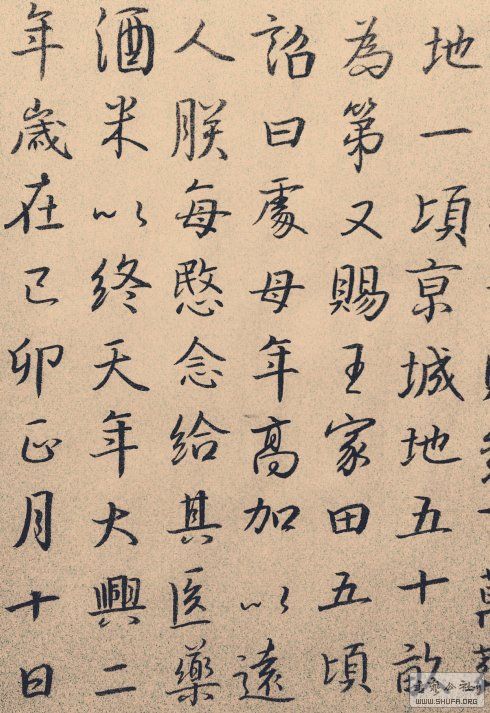 地一頃京城地五十畝
為第又賜王家田五頃
詔曰虞母年高加以遠
人朕每愍念給其医藥
酒米以終天年大興二
年歲在己卯正月十日
WWW.SHUFA.ORG